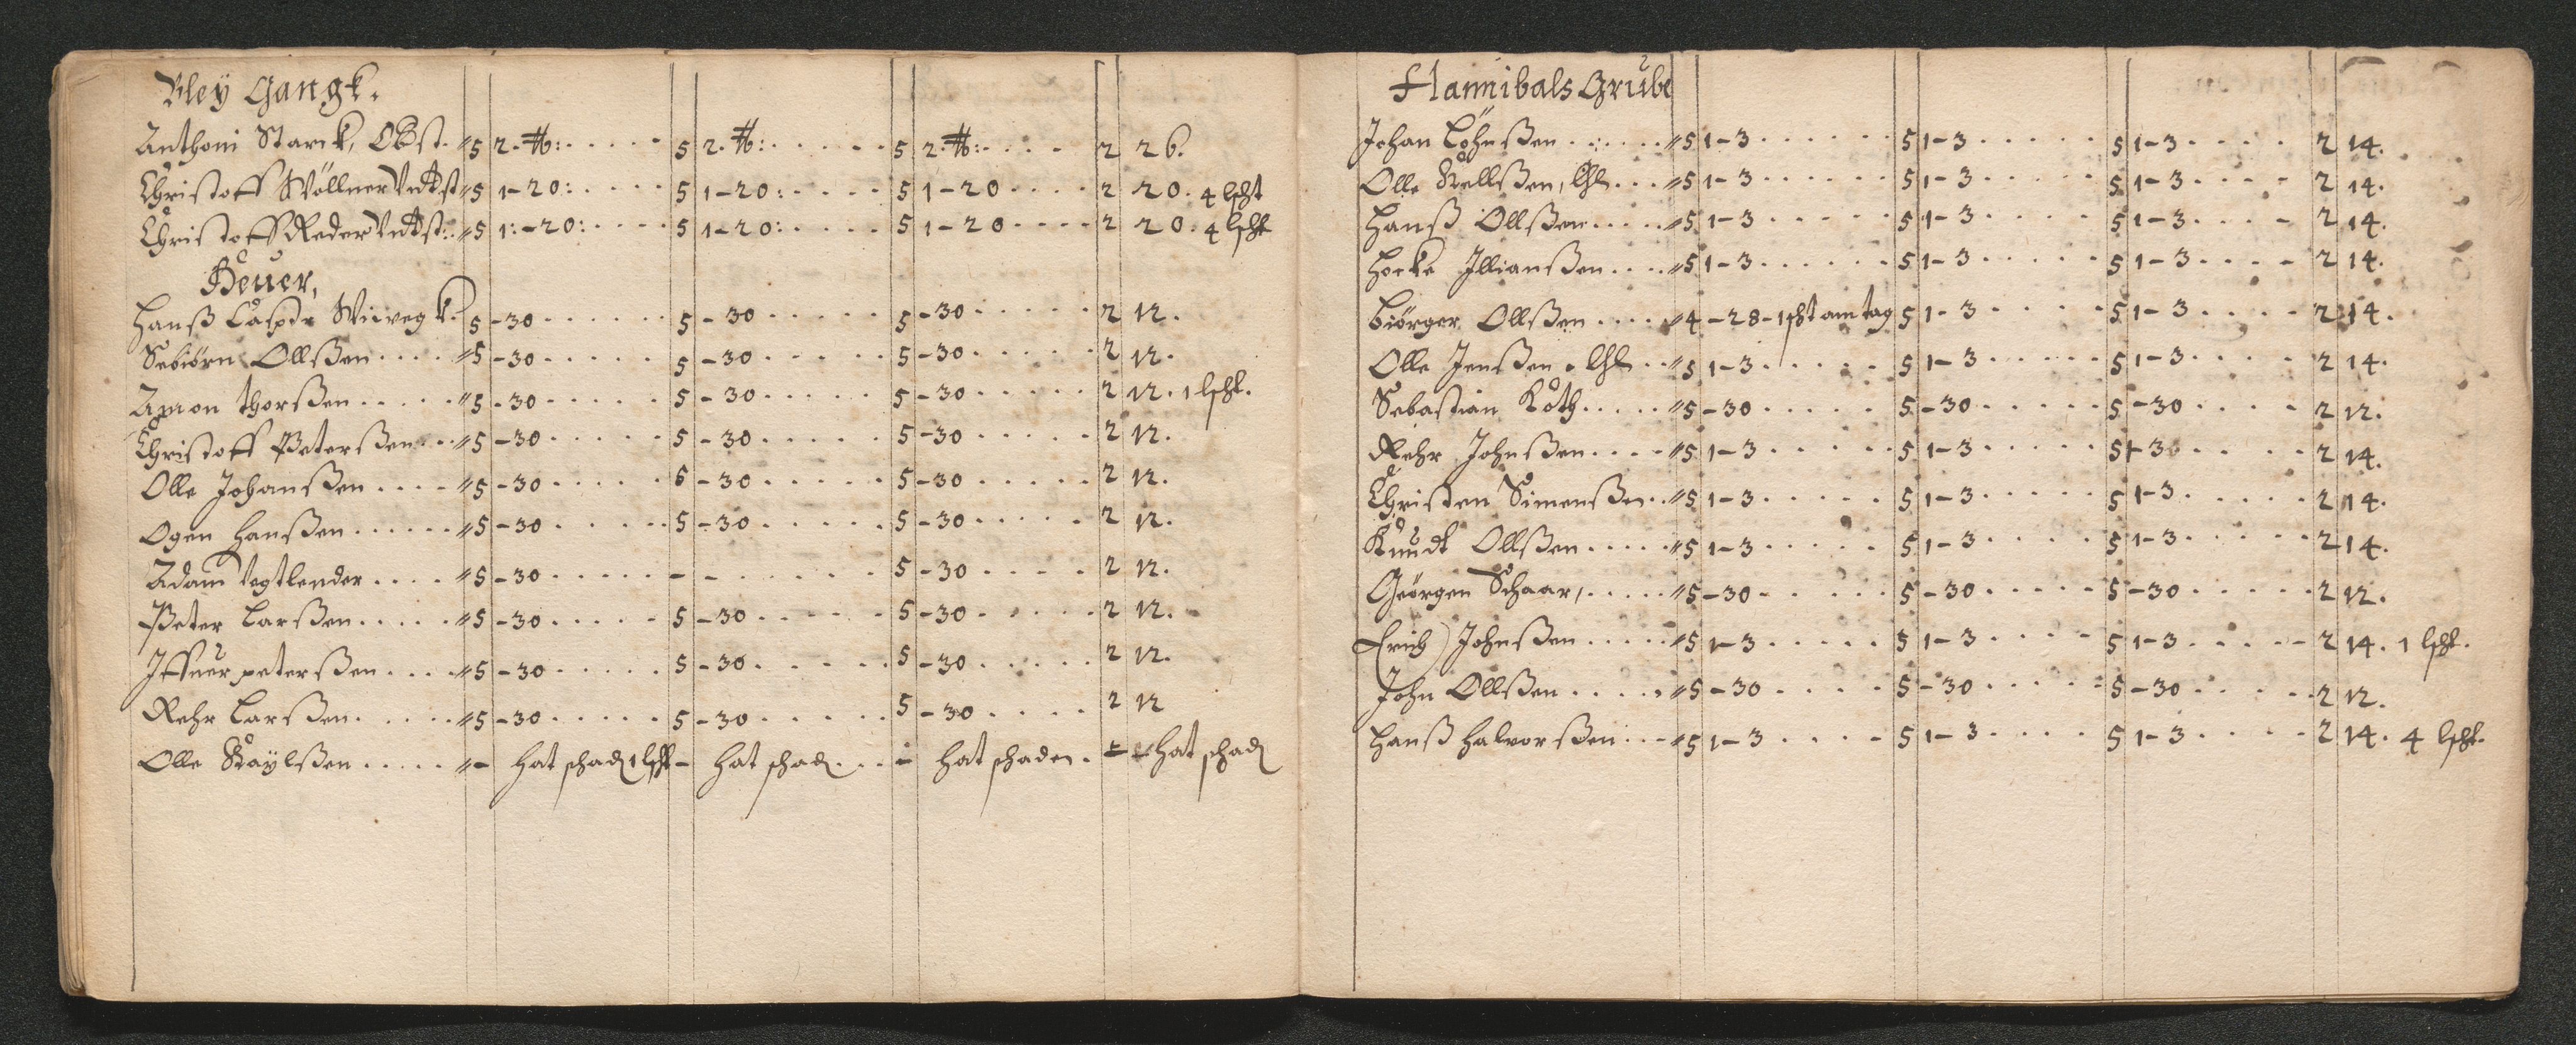 Bley Gangk.
Anthoni Starck, Obst. 〃 5 2.: 5 2.: 5 2.: 2 26.
Christoff Wöllner 〃 5 1-20: 5 1-20: 5 1-20 2 20. 4 lscht
Christoff Reder 〃 5 1:-20: 5 1-20: 5 1-20 2 20. 4 lscht
Heuer,
Hanß Casper 5 -30 5 -30 5 -30 2 12.
Sebiörn Ollßen 〃 5 -30 5 -30 5 -30 2 12.
Amon thorßen 〃 5 -30 5 -30 5 -30 2 12. 1 lscht.
Christoff Peterßen 〃 5 -30 5 -30 5 -30 2 12.
Olle Johanßen 〃 5 -30 5 -30 5 -30 2 12.
Ogen Hanßen 〃 5 -30 5 -30 5 -30 2 12.
Adam Vogtlender 〃 5 -30 - - 5 -30 2 12.
Peter Larßen 〃 5 -30 5 -30 5 -30 2 12.
Iffuer peterßen 〃 5 -30 5 -30 5 -30 2 12.
Rehr Larßen 〃 5 -30 5 -30 5 -30 2 12
Olle 〃 - hat schad 1 lscht - hat schad - hat schaden - hat schad
Hannibals Grube
Johan Löhnßen 〃 5 1-3 5 1-3 5 1-3 2 14.
Olle Kellßen, 〃 5 1-3 5 1-3 5 1-3 2 14.
Hanß Ollßen 〃 5 1-3 5 1-3 5 1-3 2 14.
Hocke Illianßen 〃 5 1-3 5 1-3 5 1-3 2 14.
Biörger Ollßen 〃 4 -28-1 scht am tag 5 1-3 5 1-3 2 14.
Olle Jenßen 〃 5 1-3 5 1-3 5 1-3 2 14.
Sebastian Koth 〃 5 -30 5 -30 5 -30 2 12.
Rehr Johnßen 〃 5 1-3 5 1-3 5 1-3 2 14.
Christen Simenßen 〃 5 1-3 5 1-3 5 1-3 2 14.
Knudt Ollßen 〃 5 1-3 5 1-3 5 1-3 2 14.
Geörgen Schaar, 〃 5 -30 5 -30 5 -30 2 12.
Erich Johnßen 〃 5 1-3 5 1-3 5 1-3 2 14. 1 lscht.
John Ollßen 〃 5 -30 5 -30 5 -30 2 12.
Hanß Halvorßen 〃 5 1-3 5 1-3 5 1-3 2 14. 4 lscht.